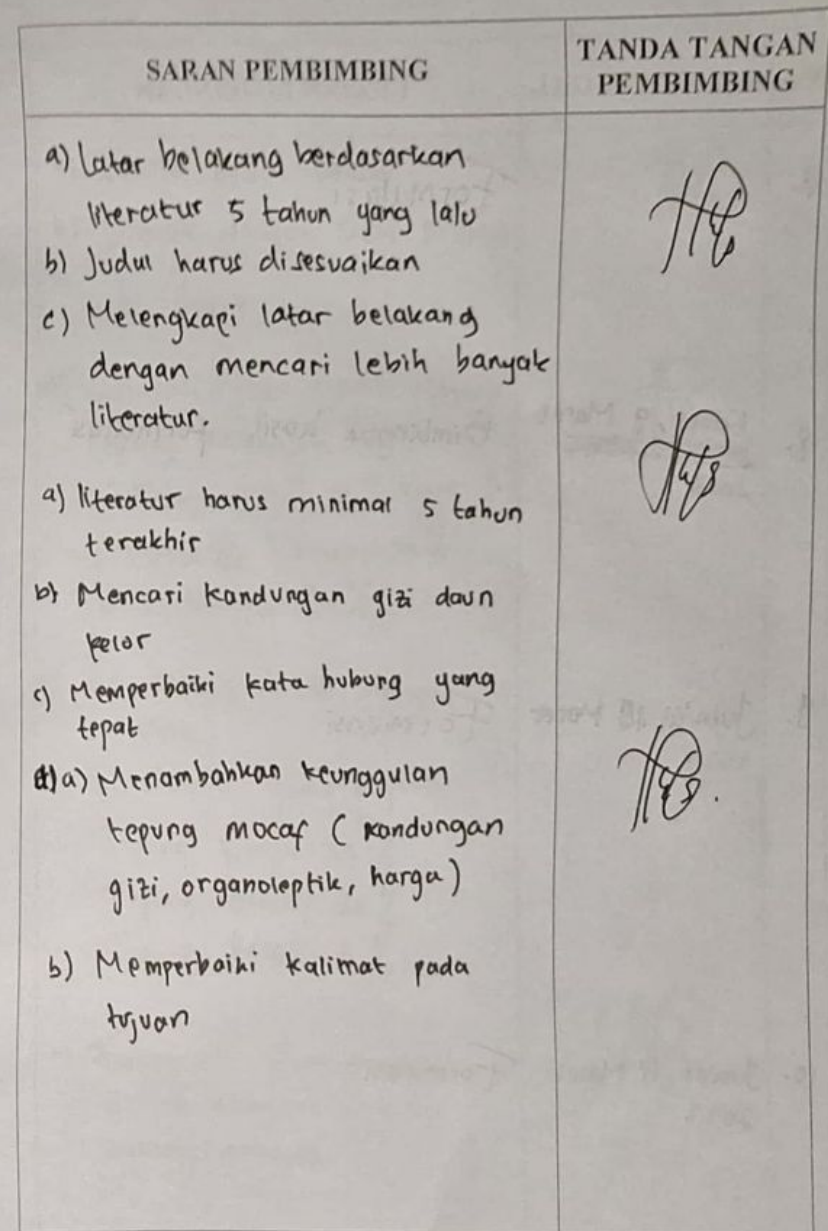 SARAN PEMBIMBING
TANDA TANGAN
PEMBIMBING
a) Latar belakang berdasarkan
literatur 5 tahun yang lalu
b) Judul harus disesuaikan
c) Melengkapi latar belakang
dengan mencari lebih banyak
literatur.
a) literatur harus minimal 5 tahun
terakhir
b) Mencari kandungan gizi daun
kelor
c) Memperbaiki kata hubung yang
tepat
a) Menambahkan keunggulan
tepung mocaf ( kandungan
gizi, organoleptik, harga )
b) Memperbaiki kalimat pada
tujuan